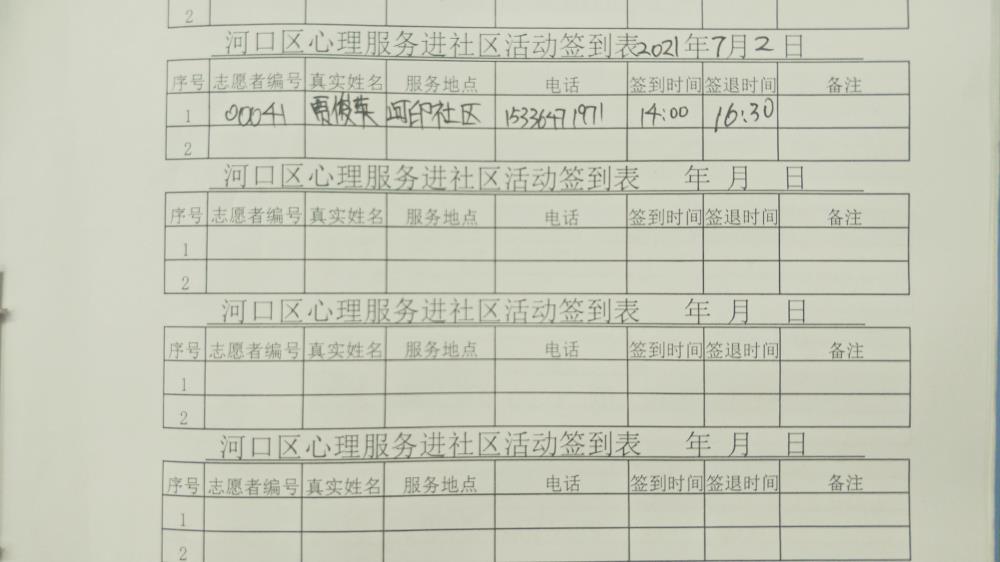 2
河口区心理服务进社区活动签到表2021年7月2日
序号 志愿者编号 真实姓名 服务地点 电话 签到时间 签退时间 备注
1 00041 贾俊英 河印社区 15336471971 14:00 16:30
2
河口区心理服务进社区活动签到表 年 月 日
序号 志愿者编号 真实姓名 服务地点 电话 签到时间 签退时间 备注
1
2
河口区心理服务进社区活动签到表 年 月 日
序号 志愿者编号 真实姓名 服务地点 电话 签到时间 签退时间 备注
1
2
河口区心理服务进社区活动签到表 年 月 日
序号 志愿者编号 真实姓名 服务地点 电话 签到时间 签退时间 备注
1
2